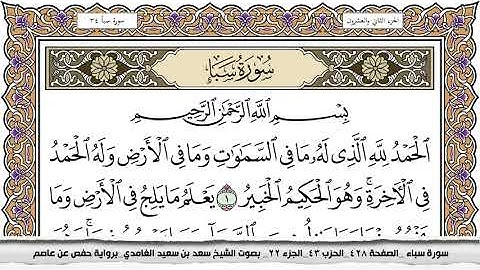 الجزء الثاني والعشرون
سورة سبأ ٣٤
سُورَةُ سَبَإٍ
بِسْمِ اللَّهِ الرَّحْمَٰنِ الرَّحِيمِ
الْحَمْدُ لِلَّهِ الَّذِي لَهُ مَا فِي السَّمَاوَاتِ وَمَا فِي الْأَرْضِ وَلَهُ الْحَمْدُ
فِي الْآخِرَةِ ۚ وَهُوَ الْحَكِيمُ الْخَبِيرُ ١ يَعْلَمُ مَا يَلِجُ فِي الْأَرْضِ وَمَا
سورة سباء _ الصفحة ٤٢٨ _ الحزب ٤٣ _ الجزء ٢٢ _ بصوت الشيخ سعد بن سعيد الغامدي _ برواية حفص عن عاصم